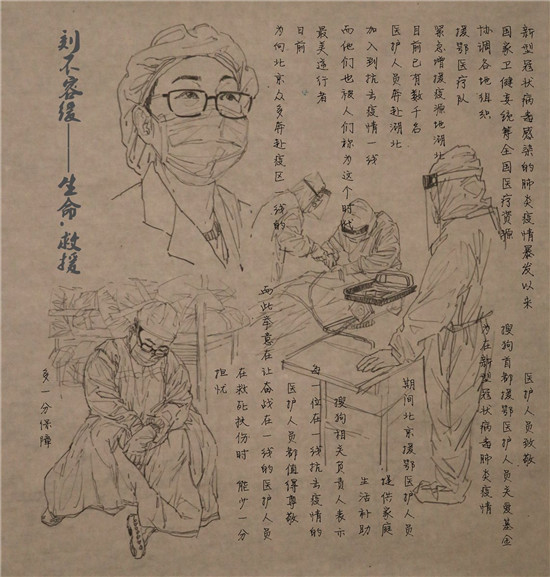 新型冠状病毒感染的肺炎疫情暴发以来
国家卫健委统筹全国医疗资源
协调各地组织
援鄂医疗队
紧急增援疫源地湖北
目前已有数千名
医护人员奔赴湖北
加入到抗击疫情一线
而他们也被人们称为这个时代
最美逆行者
日前
为向北京众多奔赴疫区一线的
医护人员致敬
搜狗首都援鄂医护人员关爱基金
为在新型冠状病毒肺炎疫情
期间北京援鄂医护人员
提供家庭
生活补助
搜狗相关负责人表示
每一位在一线抗击疫情的
医护人员都值得尊敬
而此举意在让奋战在一线的医护人员
在救死扶伤时 能少一分
担忧
多一分保障
刻不容缓——生命·救援